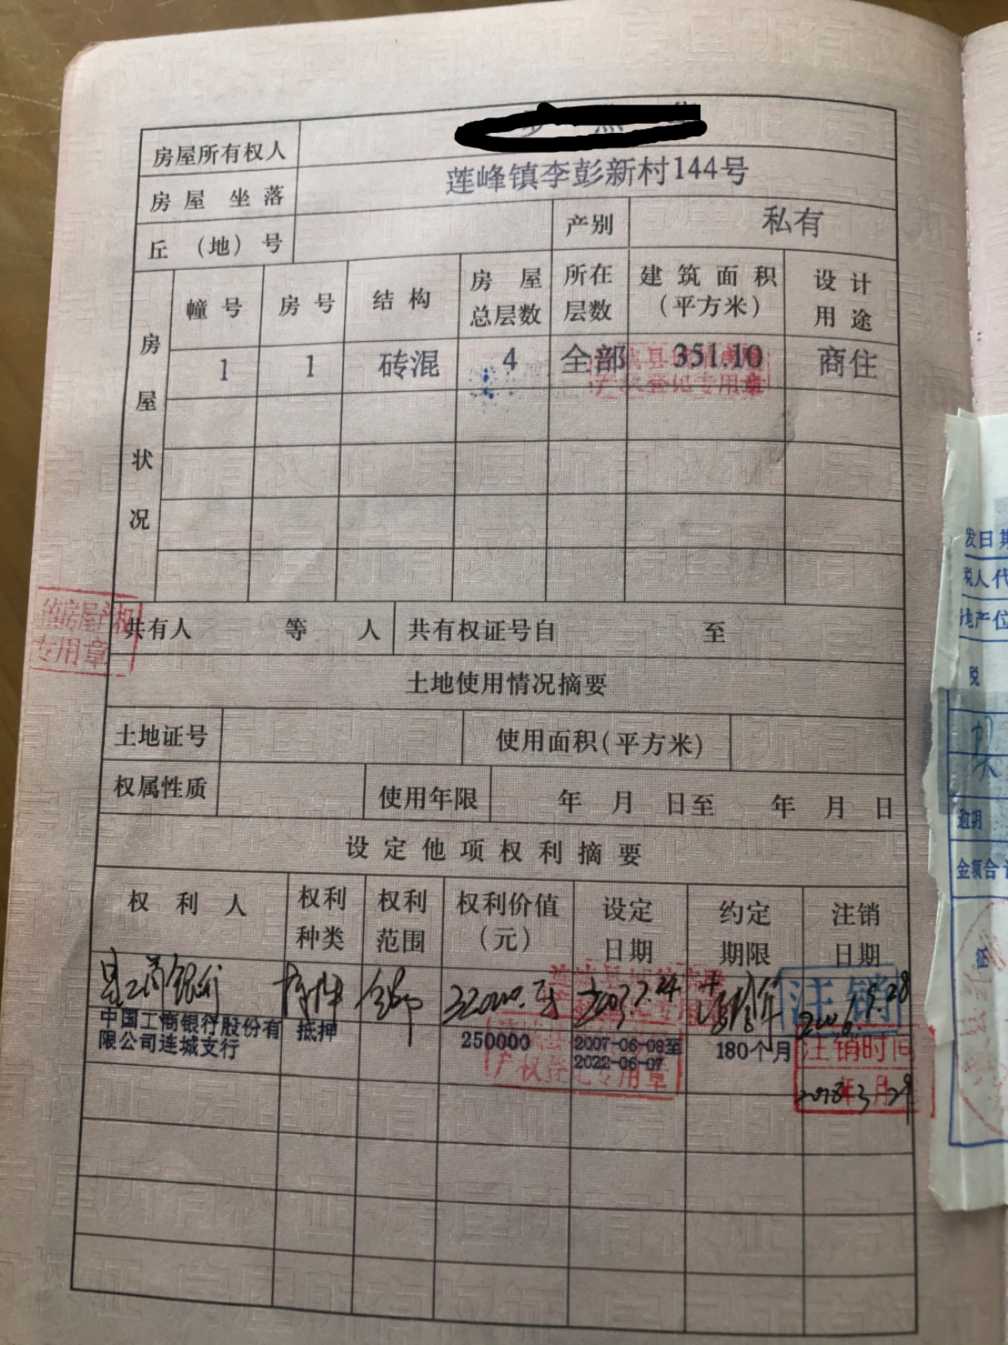 房屋所有权人
房屋坐落 莲峰镇李彭新村144号
丘（地）号 产别 私有
房屋状况
幢号 房号 结构 房屋总层数 所在层数 建筑面积（平方米） 设计用途
1 1 砖混 4 全部 351.10 商住
共有人 等 人 共有权证号自 至
土地使用情况摘要
土地证号 使用面积(平方米)
权属性质 使用年限 年 月 日至 年 月 日
设定他项权利摘要
权利人 权利种类 权利范围 权利价值（元） 设定日期 约定期限 注销日期
县工商银行 抵押 全部 注销
中国工商银行股份有限公司连城支行 抵押 250000 2007-06-08至2022-06-07 180个月 注销时间
房屋产权
专用章
产权登记专用章
发日期
税人代
地产位
税
逾期
金额合